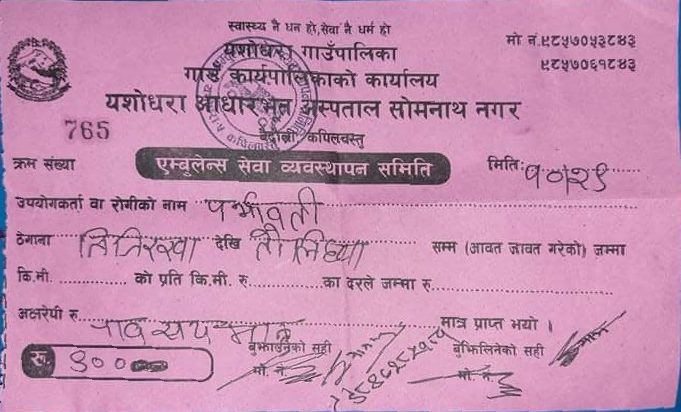 स्वास्थ्य नै धन हो, सेवा नै धर्म हो
यशोधरा गाउँपालिका
मो नं. ९८५७०५३८४३
९८५७०६१८४३
गाउँ कार्यपालिकाको कार्यालय
यशोधरा आधारभूत अस्पताल सोमनाथ नगर
765
बेदौली कपिलवस्तु
क्रम संख्या
एम्बुलेन्स सेवा व्यवस्थापन समिति
मितिः १०/२९
उपयोगकर्ता वा रोगीको नाम
ठेगाना तितिरखा देखि तौलिहवा सम्म (आवत जावत गरेको) जम्मा
कि.मी. को प्रति कि.मी. रु. का दरले जम्मा रु.
अक्षरेपी रु. मात्र प्राप्त भयो ।
बुझाउनेको सही
बुझिलिनेको सही
रु.
मो. नं.
मो. नं.